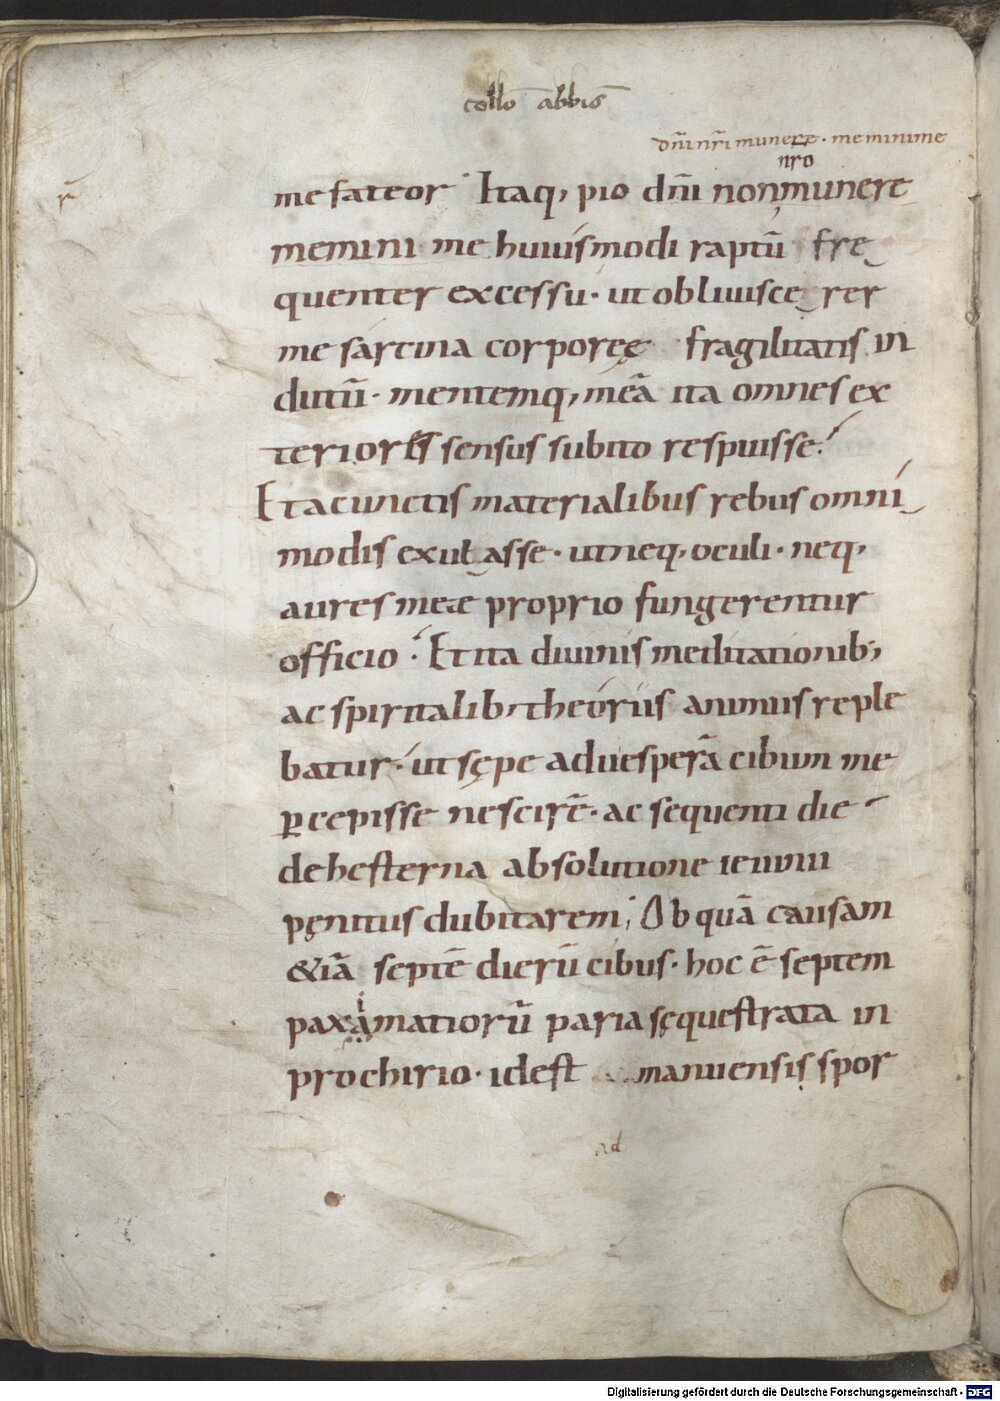 collō abbīs
dn̄i nr̄i munere · meminime
nr̄o
r̄
me fateor Itaq, pio dn̄i non munere
memini me huiuſmodi raptū fre
quenter exceſſu · ut obliuiſce rer
me ſarcina corporeę fragilitatiſ in
dutū · mentemq, meā ita omneſ ex
terioreſ ſenſuſ ſubito reſpuiſſe ·
Et a cunctiſ materialibuſ rebuſ omni
modiſ exulaſſe · ut neq, oculi · neq,
aureſ meæ proprio fungerentur
officio · Et ita diuiniſ meditationib;
ac ſpiritalib, theoriiſ animuſ reple
batur · ut ſępe ad ueſperā cibum me
ꝑcepiſſe neſcirē · ac ſequenti die
de heſterna abſolutione ieiunii
pęnituſ dubitarem; Ob quā cauſam
&iā ſeptē dierū cibuſ · hoc ē ſeptem
i
paxamatiorū paria ſequeſtrata in
prochirio · id eſt manuenſiſ ſpor
ad
Digitalisierung gefördert durch die Deutsche Forschungsgemeinschaft - DFG